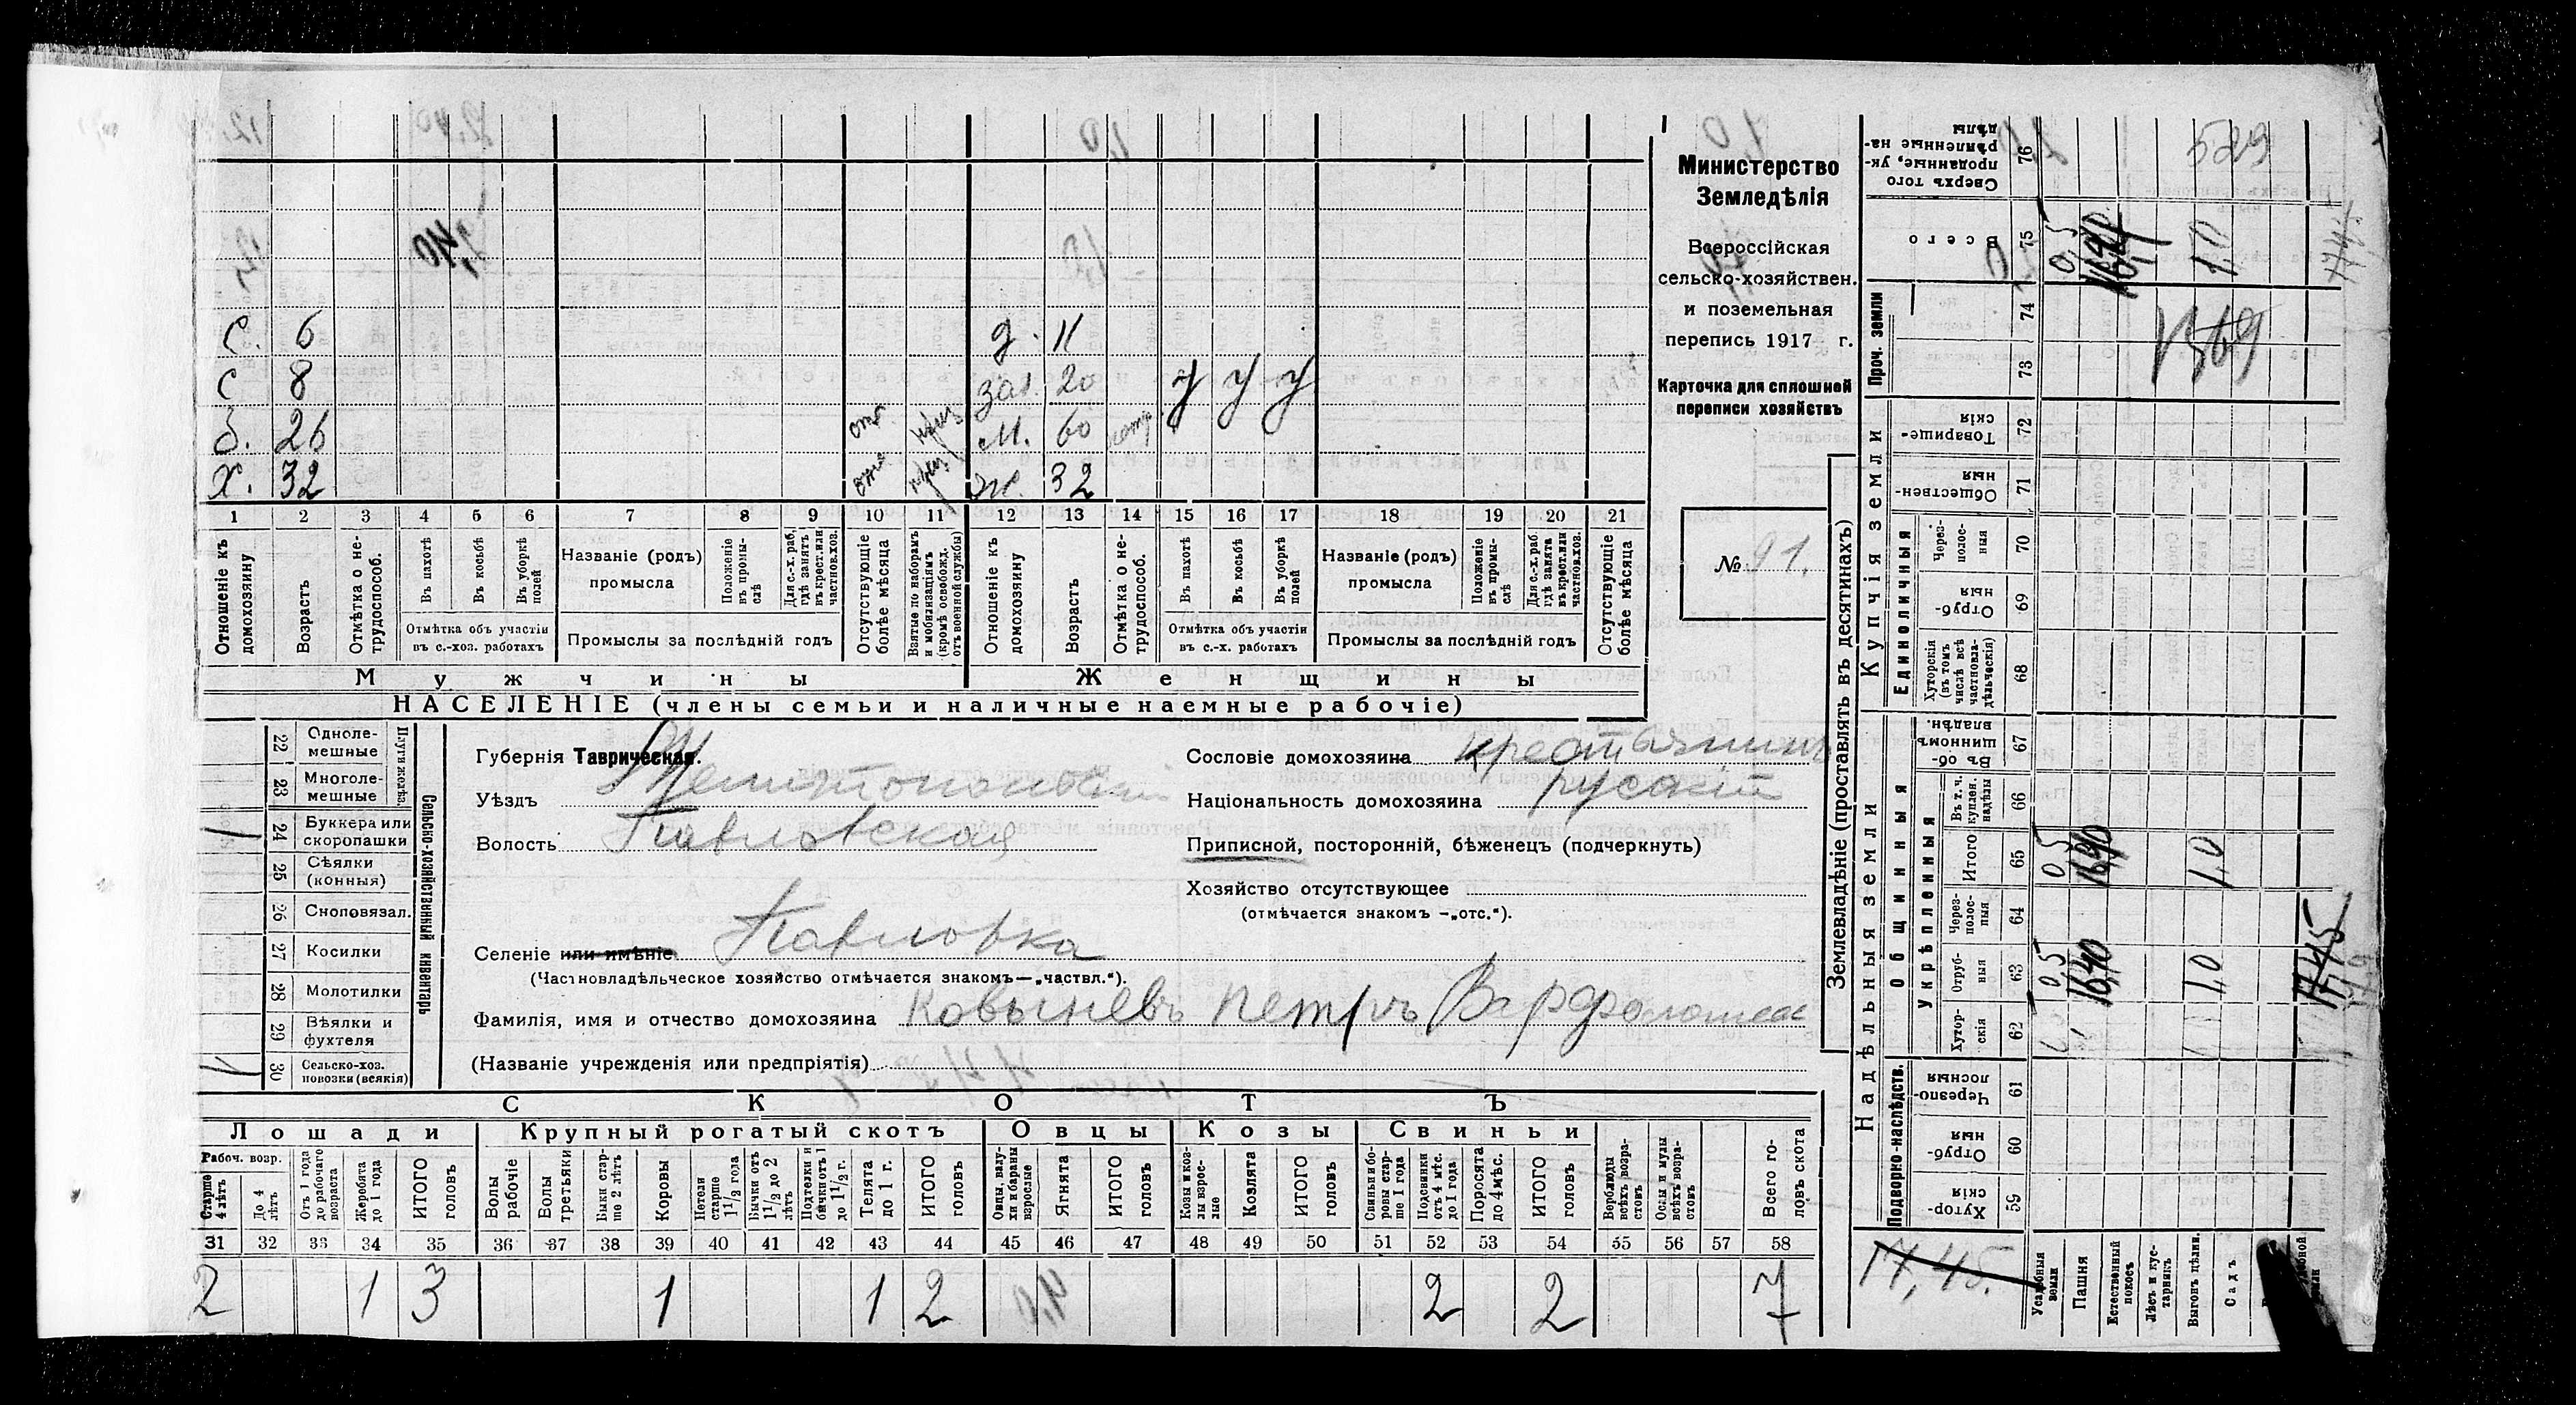 Министерство
Земледѣлія
Всероссійская
сельско-хозяйствен.
и поземельная
перепись 1917 г.
Карточка для сплошной
переписи хозяйствъ
№ 91.
с. 6 д. 11
с 8 20 у у у
б. 26 м. 60
х. 32 ж. 32
1 2 3 4 5 6 7 8 9 10 11 12 13 14 15 16 17 18 19 20 21
Отношеніе къ домохозяину
Возрастъ
Отмѣтка о не-трудоспособ.
Въ пахотѣ
Въ косьбѣ
Въ уборкѣ полей
Отмѣтка объ участіи въ с.-хоз. работахъ
Названіе (родъ) промысла
Положеніе въ промы-слѣ
Для с.-х. раб. гдѣ занятъ въ крест. или частнов. хоз.
Промыслы за послѣдній годъ
Отсутствующіе болѣе мѣсяца
Взятые по наборамъ и мобилизаціямъ (кромѣ освобожд. отъ военной службы)
Отношеніе къ домохозяину
Возрастъ
Отмѣтка о не-трудоспособ.
Въ пахотѣ
Въ косьбѣ
Въ уборкѣ полей
Отмѣтка объ участіи въ с.-х. работахъ
Названіе (родъ) промысла
Положеніе въ промы-слѣ
Для с.-х. раб. гдѣ занята въ крест. или частнов. хоз.
Промыслы за послѣдній годъ
Отсутствующіе болѣе мѣсяца
Мужчины Женщины
НАСЕЛЕНІЕ (члены семьи и наличные наемные рабочіе)
Сельско-хозяйственный инвентарь
22 Одноле-мешные
23 Многоле-мешные
24 Буккера или скоропашки 1
25 Сѣялки (конныя)
26 Сноповязал.
27 Косилки
28 Молотилки
29 Вѣялки и фухтеля
30 Сельско-хоз. повозки (всякія) 1
Губернія Таврическая.
Уѣздъ Мелитопольскій
Волость Павловская
Селеніе или имѣніе Павловка
(Частновладѣльческое хозяйство отмѣчается знакомъ—„частвл.“).
Фамилія, имя и отчество домохозяина Ковыневъ Петръ Варфоломеев
(Названіе учрежденія или предпріятія)
Сословіе домохозяина крестьянинъ
Національность домохозяина русскій
Приписной, посторонній, бѣженецъ (подчеркнуть)
Хозяйство отсутствующее
(отмѣчается знакомъ —„отс.“).
СКОТЪ
Лошади Крупный рогатый скотъ Овцы Козы Свиньи
Рабоч. возр.
Старше 4 лѣтъ
До 4 лѣтъ
Отъ 1 года до рабочаго возраста
Жеребята до 1 года
ИТОГО головъ
Волы рабочіе
Волы третьяки
Быки стар-ше 2 лѣтъ
Коровы
Нетели старше 1 1/2 года
Бычки отъ 1 1/2 до 2 лѣтъ
Подтелки и бычки отъ 1 до 1 1/2 г.
Телята до 1 г.
ИТОГО головъ
Овцы, валу-хи и бараны взрослые
Ягнята
ИТОГО головъ
Козы и коз-лы взрос-лые
Козлята
ИТОГО головъ
Свиньи и бо-ровы стар-ше 1 года
Подсвинки отъ 4 мѣс. до 1 года
Поросята до 4 мѣс.
ИТОГО головъ
Верблюды всѣхъ возра-стовъ
Ослы и мулы всѣхъ возра-стовъ
Всего го-ловъ скота
31 32 33 34 35 36 37 38 39 40 41 42 43 44 45 46 47 48 49 50 51 52 53 54 55 56 57 58
2 1 3 1 1 2 2 2 7
Землевладѣніе (проставлять въ десятинахъ)
Надѣльныя земли Купчія земли Проч. земли
Подворно-наслѣдств.
Общинныя
Укрѣпленныя
Единоличныя
59 Хутор-скія
60 Отруб-ныя
61 Черезпо-лосныя
62 Хутор-скія
63 Отруб-ныя 0,5 16,40 1,0
64 Черезполос-ныя
65 Итого 0,5 16,40 1,0
66 Въ т. ч. куплен. надѣлы
67 Въ об-щинномъ владѣн.
68 Хуторскія (въ томъ числѣ всѣ частновла-дѣльческія)
69 Отруб-ныя
70 Черезполос-ныя
71 Обществен-ныя
72 Товарище-скія
73
74
75 Всего 0,5 1,0
76 Сверхъ того проданные, ук-рѣпленные на-дѣлы
529
17,45
17,45.
Усадебныя земли
Пашня
Естественный покосъ
Лѣсъ и кус-тарникъ
Выгонъ цѣлин.
Садъ